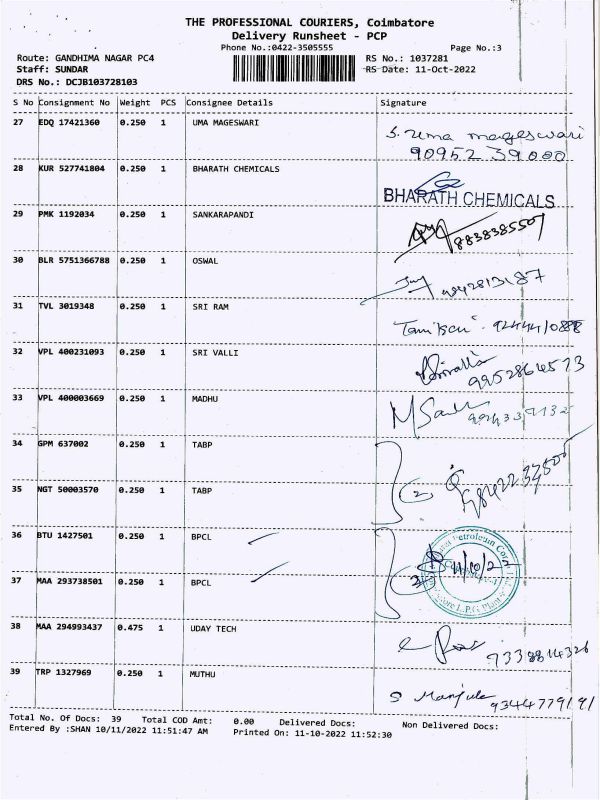 THE PROFESSIONAL COURIERS, Coimbatore
Delivery Runsheet - PCP
Phone No.:0422-3505555 Page No.:3
Route: GANDHIMA NAGAR PC4 RS No.: 1037281
Staff: SUNDAR RS Date: 11-Oct-2022
DRS No.: DCJB103728103
S No Consignment No Weight PCS Consignee Details Signature
27 EDQ 17421360 0.250 1 UMA MAGESWARI S. Uma mageswari
90952 39000
28 KUR 527741804 0.250 1 BHARATH CHEMICALS
BHARATH CHEMICALS
29 PMK 1192034 0.250 1 SANKARAPANDI
8838385507
30 BLR 5751366788 0.250 1 OSWAL
31 TVL 3019348 0.250 1 SRI RAM
32 VPL 400231093 0.250 1 SRI VALLI
9952864573
33 VPL 400003669 0.250 1 MADHU
34 GPM 637002 0.250 1 TABP
35 NGT 50003570 0.250 1 TABP
2
36 BTU 1427501 0.250 1 BPCL
11/10/22
37 MAA 293738501 0.250 1 BPCL
38 MAA 294993437 0.475 1 UDAY TECH
39 TRP 1327969 0.250 1 MUTHU
S Manjula 9344779191
Total No. Of Docs: 39 Total COD Amt: 0.00 Delivered Docs: Non Delivered Docs:
Entered By :SHAN 10/11/2022 11:51:47 AM Printed On: 11-10-2022 11:52:30